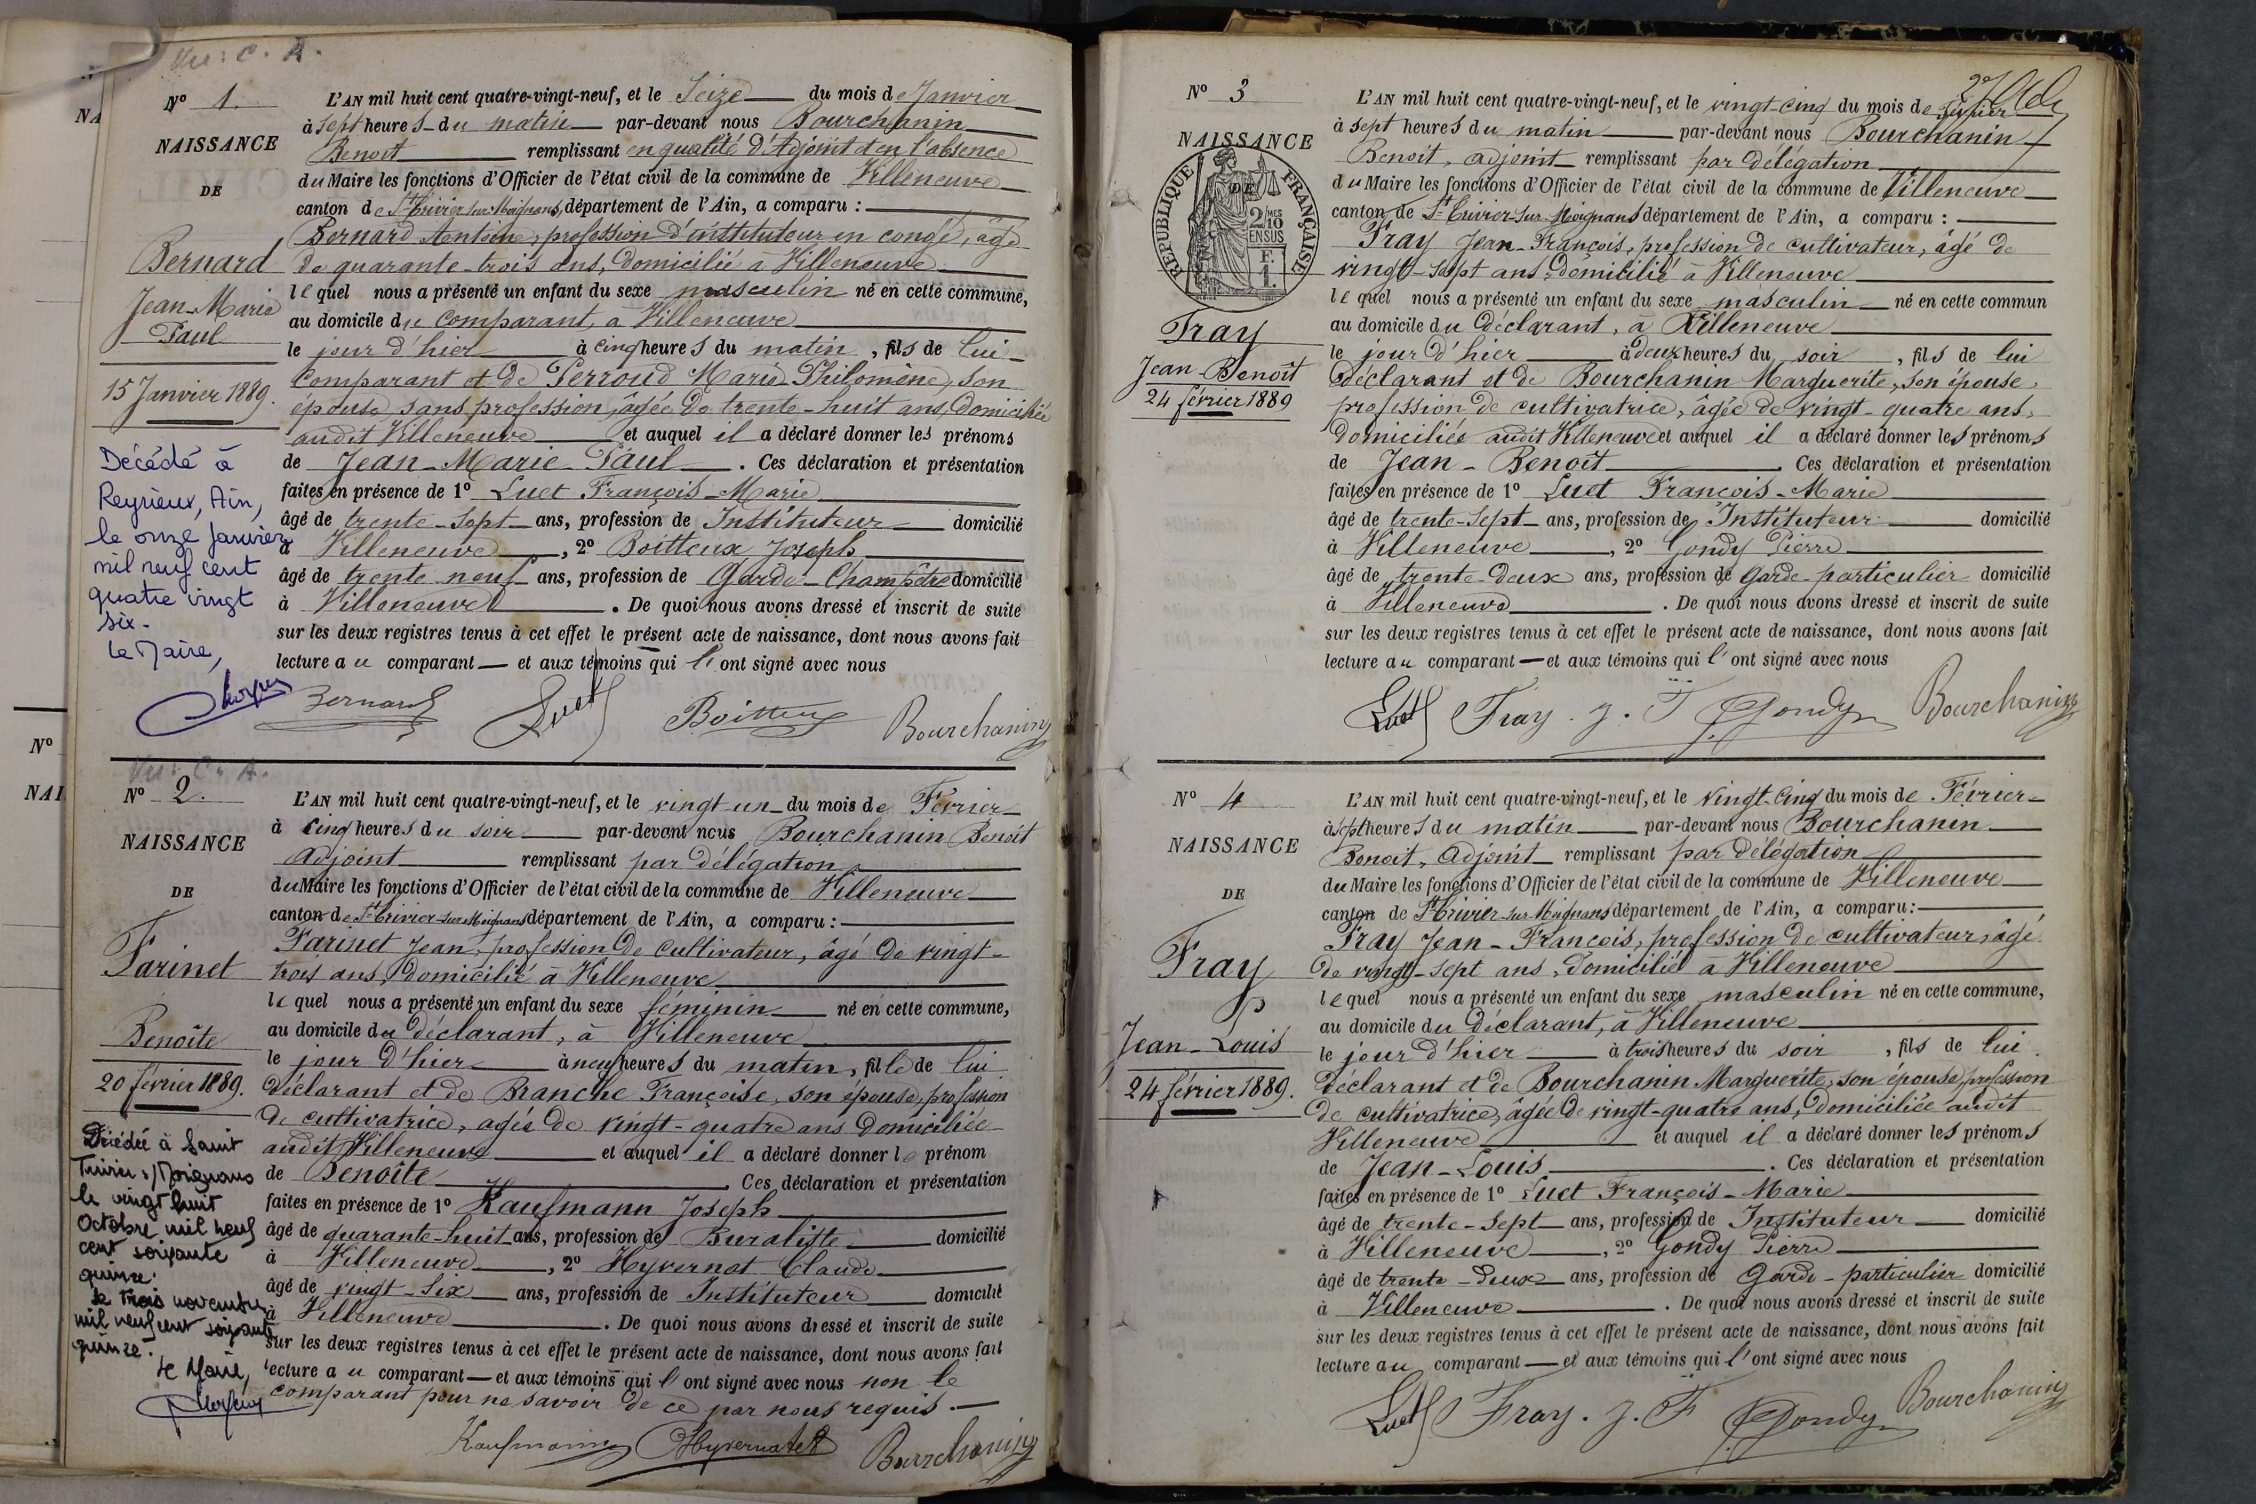 Vu: C. A.
N° 1.
NAISSANCE
DE
Bernard
Jean-Marie
Paul
15 Janvier 1889.
Décédé à
Reyrieux, Ain,
le onze Janvier
mil neuf cent
quatre vingt
six.
Le Maire,
L'AN mil huit cent quatre-vingt-neuf, et le Seize du mois de Janvier
à sept heures du matin par-devant nous Bourchanin
Benoit remplissant en qualité d'Adjoint et en l'absence
du Maire les fonctions d'Officier de l'état civil de la commune de Villeneuve
canton de St Trivier sur Moignans, département de l'Ain, a comparu :
Bernard Antoine, profession d'instituteur en congé, âgé
de quarante-trois ans, domicilié à Villeneuve
lequel nous a présenté un enfant du sexe masculin né en cette commune,
au domicile du comparant, à Villeneuve
le jour d'hier à cinq heures du matin, fils de lui
comparant et de Perroud Marie Philomène, son
épouse, sans profession, âgée de trente-huit ans, domiciliée
audit Villeneuve et auquel il a déclaré donner les prénoms
de Jean-Marie-Paul. Ces déclaration et présentation
faites en présence de 1° Luet François-Marie
âgé de trente-sept ans, profession de Instituteur domicilié
à Villeneuve, 2° Boitteux Joseph
âgé de trente neuf ans, profession de Garde-Champêtre domicilié
à Villeneuve. De quoi nous avons dressé et inscrit de suite
sur les deux registres tenus à cet effet le présent acte de naissance, dont nous avons fait
lecture au comparant et aux témoins qui l'ont signé avec nous
Bernard Luet Boitteux Bourchanin
Vu: C. A.
N° 2.
NAISSANCE
DE
Farinet
Benoîte
20 février 1889.
Décédée à Saint
Trivier s/Moignans
le vingt huit
Octobre mil neuf
cent soixante
quinze.
Le trois novembre
mil neuf cent soixante
quinze.
Le Maire,
L'AN mil huit cent quatre-vingt-neuf, et le vingt-un du mois de Février
à cinq heures du soir par-devant nous Bourchanin Benoit
Adjoint remplissant par délégation
du Maire les fonctions d'Officier de l'état civil de la commune de Villeneuve
canton de St Trivier-sur-Moignans département de l'Ain, a comparu :
Farinet Jean, profession de cultivateur, âgé de vingt-
trois ans, domicilié à Villeneuve
lequel nous a présenté un enfant du sexe féminin né en cette commune,
au domicile du déclarant, à Villeneuve
le jour d'hier à neuf heures du matin, fille de lui
déclarant et de Branche Françoise, son épouse, profession
de cultivatrice, agée de vingt-quatre ans domiciliée
audit Villeneuve et auquel il a déclaré donner le prénom
de Benoîte. Ces déclaration et présentation
faites en présence de 1° Kaufmann Joseph
âgé de quarante-huit ans, profession de Buraliste domicilié
à Villeneuve, 2° Hyvernat Claude
âgé de vingt-six ans, profession de Instituteur domicilié
à Villeneuve. De quoi nous avons dressé et inscrit de suite
sur les deux registres tenus à cet effet le présent acte de naissance, dont nous avons fait
lecture au comparant et aux témoins qui l'ont signé avec nous non le
comparant pour ne savoir de ce par nous requis.
Kaufmann Hyvernat Bourchanin
N° 3
NAISSANCE
DE
RÉPUBLIQUE FRANÇAISE
2 MES
10
EN SUS
F.
1.
Fray
Jean-Benoît
24 février 1889
L'AN mil huit cent quatre-vingt-neuf, et le vingt-cinq du mois de Février
à sept heures du matin par-devant nous Bourchanin
Benoit, adjoint remplissant par délégation
du Maire les fonctions d'Officier de l'état civil de la commune de Villeneuve
canton de St-Trivier-sur-Moignans département de l'Ain, a comparu :
Fray Jean-François, profession de cultivateur, âgé de
vingt-sept ans, domicilié à Villeneuve
lequel nous a présenté un enfant du sexe masculin né en cette commun
au domicile du déclarant, à Villeneuve
le jour d'hier à deux heures du soir, fils de lui
déclarant et de Bourchanin Marguerite, son épouse,
profession de cultivatrice, âgée de vingt-quatre ans,
domiciliée audit Villeneuve et auquel il a déclaré donner les prénoms
de Jean-Benoît. Ces déclaration et présentation
faites en présence de 1° Luet François-Marie
âgé de trente-sept ans, profession de Instituteur domicilié
à Villeneuve, 2° Gondy Pierre
âgé de trente-deux ans, profession de Garde-particulier domicilié
à Villeneuve. De quoi nous avons dressé et inscrit de suite
sur les deux registres tenus à cet effet le présent acte de naissance, dont nous avons fait
lecture au comparant et aux témoins qui l'ont signé avec nous
Luet Fray. J. F Gondy Bourchanin
N° 4
NAISSANCE
DE
Fray
Jean-Louis
24 février 1889.
L'AN mil huit cent quatre-vingt-neuf, et le vingt-cinq du mois de Février
à sept heures du matin par-devant nous Bourchanin
Benoit, Adjoint remplissant par délégation
du Maire les fonctions d'Officier de l'état civil de la commune de Villeneuve
canton de St Trivier-sur-Moignans département de l'Ain, a comparu :
Fray Jean-François, profession de cultivateur, âgé
de vingt-sept ans, domicilié à Villeneuve
lequel nous a présenté un enfant du sexe masculin né en cette commune,
au domicile du déclarant, à Villeneuve
le jour d'hier à trois heures du soir, fils de lui
déclarant et de Bourchanin Marguerite, son épouse, profession
de cultivatrice, âgée de vingt-quatre ans, domiciliée audit
Villeneuve et auquel il a déclaré donner les prénoms
de Jean-Louis. Ces déclaration et présentation
faites en présence de 1° Luet François-Marie
âgé de trente-sept ans, profession de Instituteur domicilié
à Villeneuve, 2° Gondy Pierre
âgé de trente-deux ans, profession de Garde-particulier domicilié
à Villeneuve. De quoi nous avons dressé et inscrit de suite
sur les deux registres tenus à cet effet le présent acte de naissance, dont nous avons fait
lecture au comparant et aux témoins qui l'ont signé avec nous
Luet Fray. J. F Gondy Bourchanin